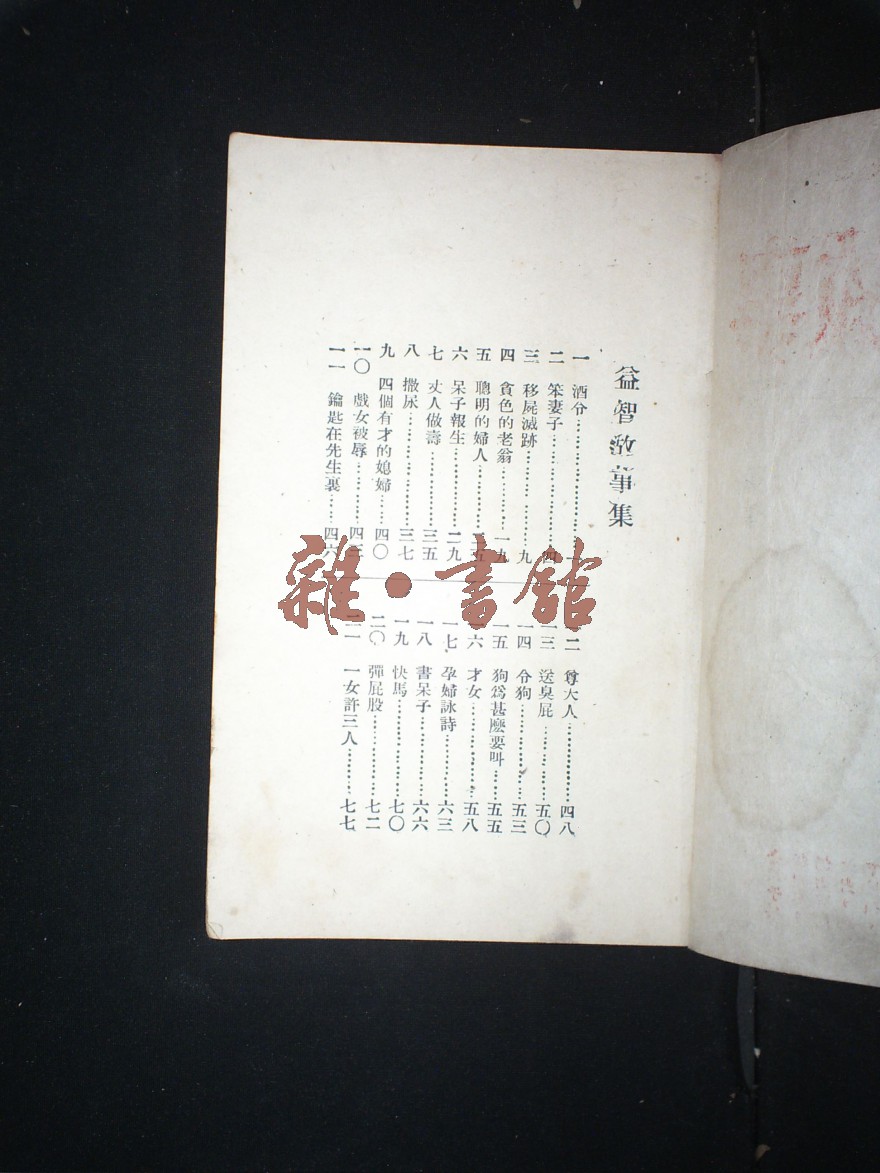 益智故事集
一 酒令……一
二 笨妻子……四
三 移屍滅跡……九
四 貪色的老翁……一九
五 聰明的婦人……五
六 呆子報生……二九
七 丈人做壽……三五
八 撒尿……三七
九 四個有才的媳婦……四〇
一〇 戲女被辱……四三
一一 鑰匙在先生裏……四六
二 尊大人……四八
一三 送臭屁……五〇
一四 令狗……五三
一五 狗爲甚麽要叫……五五
一六 才女……五八
一七 孕婦詠詩……六三
一八 書呆子……六六
一九 快馬……七〇
二〇 彈屁股……七二
二一 一女許三人……七七
雜·書館